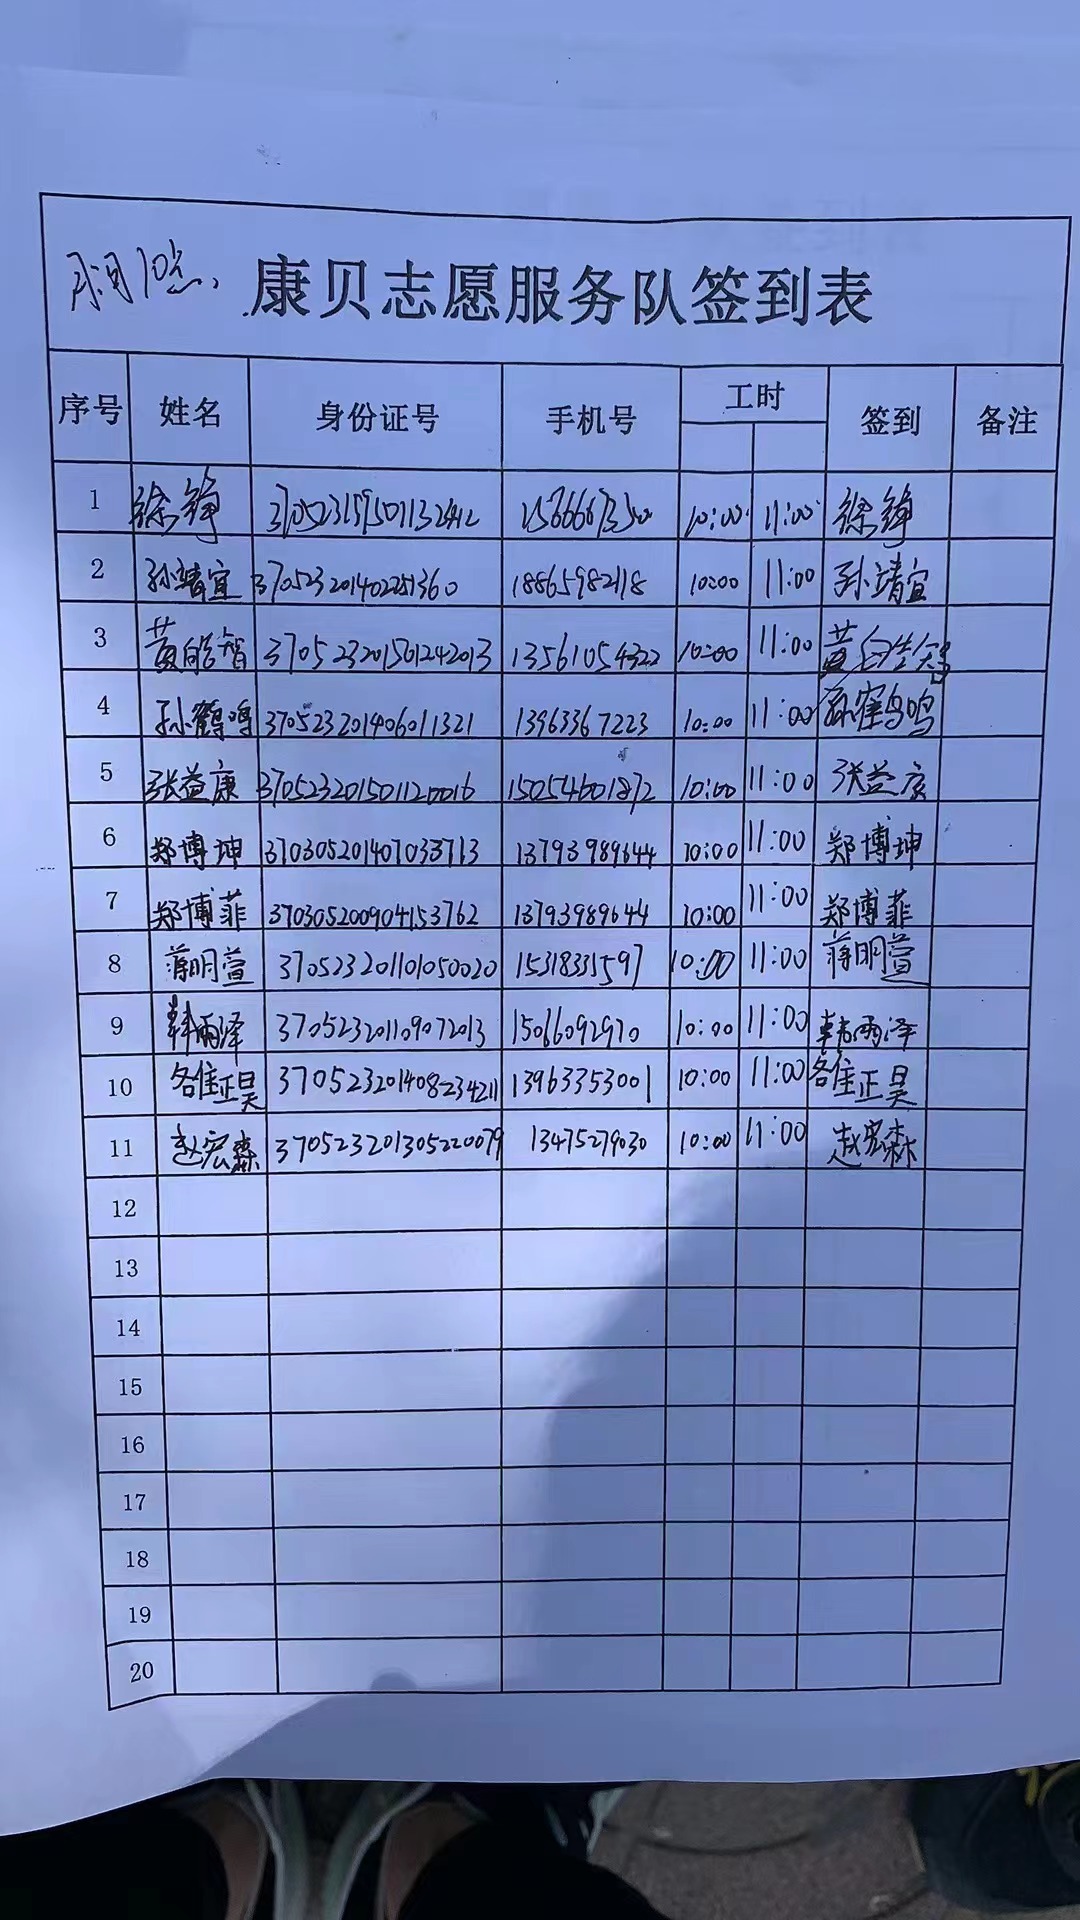 康贝志愿服务队签到表
序号 姓名 身份证号 手机号 工时 签到 备注
1 徐铮 10:00 11:00 徐铮
2 孙靖宜 18865982118 10:00 11:00 孙靖宜
3 黄皓智 370523201501242013 13561054322 10:00 11:00 黄皓智
4 孙鹤鸣 370523201406011321 13963367223 10:00 11:00 孙鹤鸣
5 张益康 370523201501120016 15054601872 10:00 11:00 张益康
6 郑博坤 370305201407033713 13793989644 10:00 11:00 郑博坤
7 郑博菲 370305200904153762 13793989644 10:00 11:00 郑博菲
8 蒋明萱 370523201101050020 15318331597 10:00 11:00 蒋明萱
9 韩雨泽 370523201109072013 15066092970 10:00 11:00 韩雨泽
10 370523201408234211 13963353001 10:00 11:00
11 赵宏森 370523201305220079 13475279030 10:00 11:00 赵宏森
12
13
14
15
16
17
18
19
20